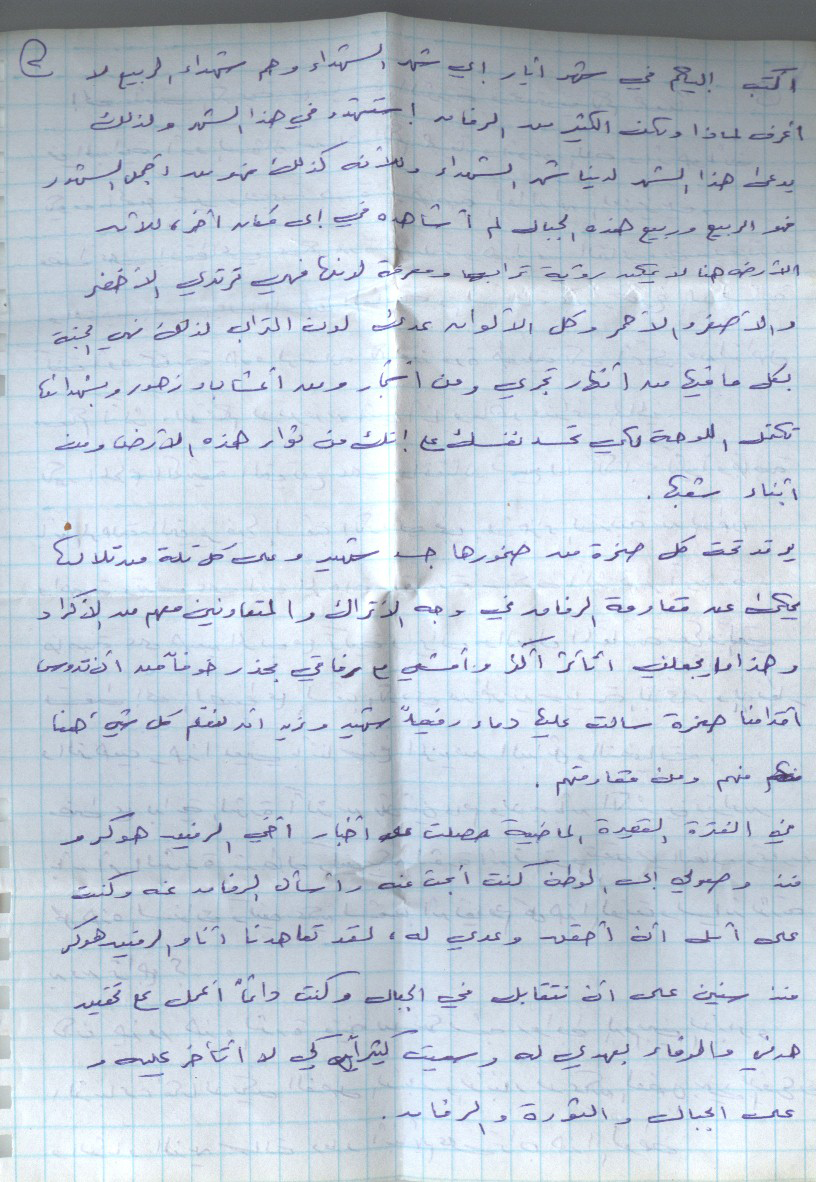 ٢
اكتب إليكم في شهر أيار إي شهر الشهداء وهم شهداء الربيع لا
أعرف لماذا ولكن الكثير من الرفاق إستشهدو في هذا الشهر ولذلك
يدعى هذا الشهر لدينا شهر الشهداء وللأنه كذلك فهو من أجمل الشهور
فهو الربيع وربيع هذه الجبال لم أشاهده في إي مكان آخر، للأن
الأرض هنا لا يمكن رؤية ترابها ومعرفة لونها فهي ترتدي الأخضر
والأصفر والأحمر وكل الألوان عدى لون التراب لذلك فهي الجنة
بكل ما فيها من أنهار تجري ومن أشجار ومن أعشاب وزهور وبشهدائها
تكتمل اللوحة لكي تحسد نفسك على إنك من ثوار هذه الأرض ومن
أبناء شعبها.
يرقد تحت كل صخرة من صخورها جسد شهيد وعلى كل تلة من تلالها
يحكى عن مقاومة الرفاق في وجه الأتراك والمتعاونين معهم من الأكراد
وهذا ما يجعلني أتأثر أكثر وأمشي مع رفاقي بحذر خوفاً من أن تدوس
أقدامنا صخرة سالت عليها دماء رفيقاً شهيد ونريد أن نفهم كل شيء هنا
منهم ومن مقاومتهم.
في الفترة القصيرة الماضية حصلت على أخبار أخي الرفيق هوكر و
منذ وصولي إلى الوطن كنت أبحث عنه وأسأل الرفاق عنه وكنت
على أمل أن أحقق وعدي له، لقد تعاهدنا أنا والرفيق هوكر
منذ سنين على أن نتقابل في الجبال وكنت دائماً أعمل على تحقيق
هدفي والوفاء بعهدي له وسعيت كثيراً كي لا أتأخر عليه و
على الجبال والثورة والرفاق.